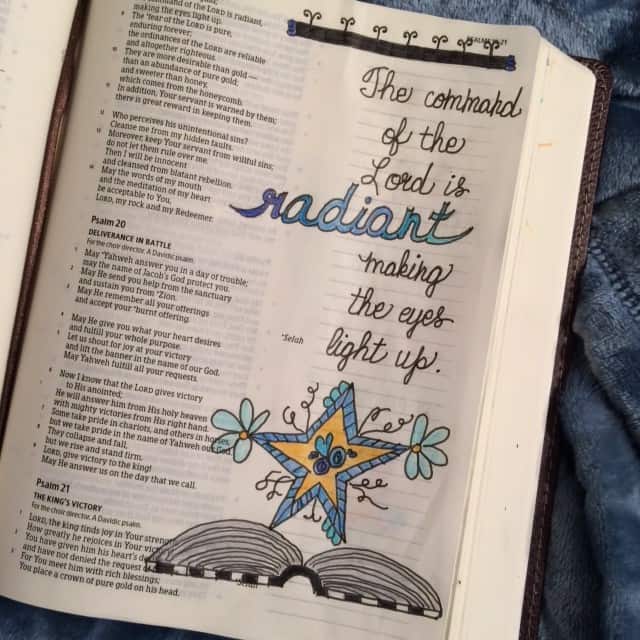 command of the LORD is radiant,
making the eyes light up.
The fear of the LORD is pure,
enduring forever;
the ordinances of the LORD are reliable
and altogether righteous.
They are more desirable than gold —
than an abundance of pure gold;
and sweeter than honey,
which comes from the honeycomb.
In addition, Your servant is warned by them;
there is great reward in keeping them.
Who perceives his unintentional sins?
Cleanse me from my hidden faults.
Moreover, keep Your servant from willful sins;
do not let them rule over me.
Then I will be innocent
and cleansed from blatant rebellion.
May the words of my mouth
and the meditation of my heart
be acceptable to You,
LORD, my rock and my Redeemer.
Psalm 20
DELIVERANCE IN BATTLE
For the choir director. A Davidic psalm.
May Yahweh answer you in a day of trouble;
may the name of Jacob's God protect you.
May He send you help from the sanctuary
and sustain you from Zion.
May He remember all your offerings
and accept your burnt offering.
Selah
May He give you what your heart desires
and fulfill your whole purpose.
Let us shout for joy at your victory
and lift the banner in the name of our God.
May Yahweh fulfill all your requests.
Now I know that the LORD gives victory
to His anointed;
He will answer him from His holy heaven
with mighty victories from His right hand.
Some take pride in chariots, and others in horses,
but we take pride in the name of Yahweh our God.
They collapse and fall,
but we rise and stand firm.
LORD, give victory to the king!
May He answer us on the day that we call.
Psalm 21
THE KING'S VICTORY
For the choir director. A Davidic psalm.
LORD, the king finds joy in Your
How greatly he rejoices in Your
You have given him his heart's
and have not denied the request
Selah
For You meet him with rich blessings;
You place a crown of pure gold on his head.
The command
of the
Lord is
radiant
making
the eyes
light up.